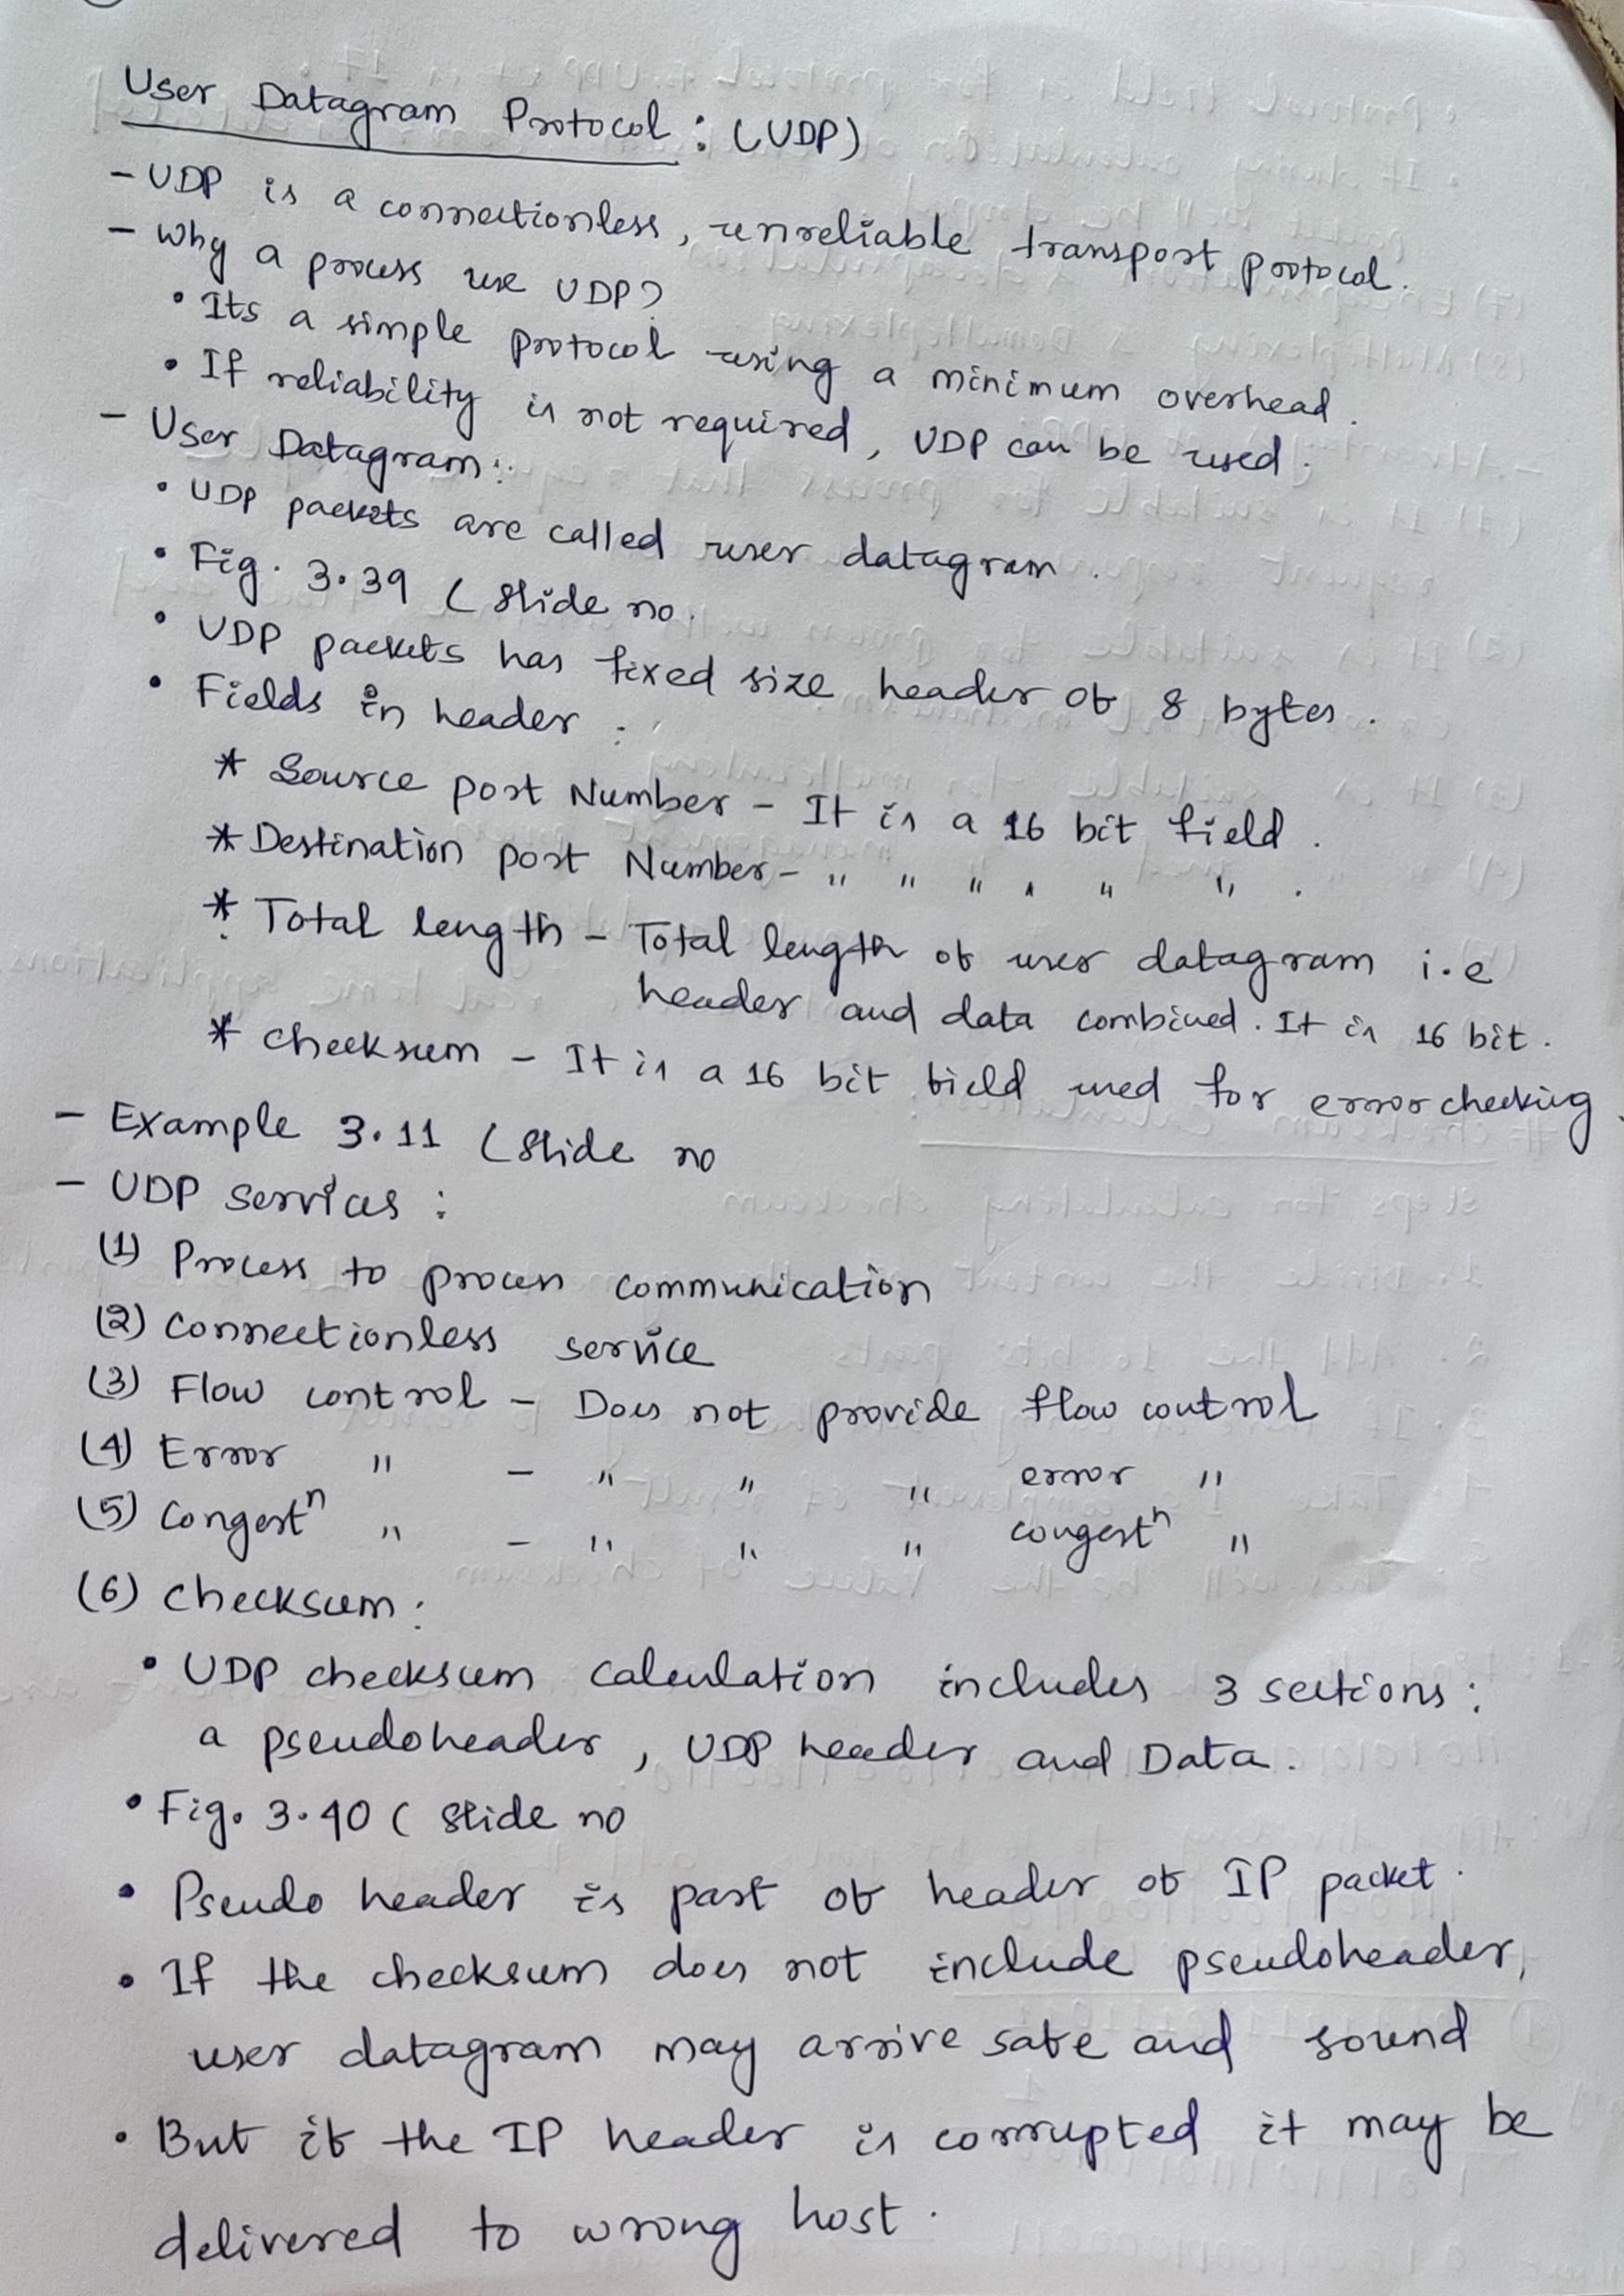 User Datagram Protocol : (UDP)
- UDP is a connectionless, unreliable transport protocol.
- Why a process use UDP?
• Its a simple protocol using a minimum overhead.
• If reliability is not required, UDP can be used.
- User Datagram:
• UDP packets are called user datagram.
• Fig. 3.39 ( Slide no.
• UDP packets has fixed size header of 8 bytes.
• Fields in header :
* Source port Number - It is a 16 bit field.
* Destination port Number - " " " " " " .
* Total length - Total length of user datagram i.e
header and data combined. It is 16 bit.
* checksum - It is a 16 bit field used for error checking.
- Example 3.11 ( Slide no
- UDP services :
(1) Process to process communication
(2) Connectionless service
(3) Flow control - Does not provide flow control
(4) Error " - " " " error "
(5) Congestⁿ " - " " " congestⁿ "
(6) Checksum :
• UDP checksum calculation includes 3 sections :
a pseudoheader, UDP header and Data.
• Fig. 3.40 ( Slide no
• Pseudo header is part of header of IP packet.
• If the checksum does not include pseudoheader,
user datagram may arrive safe and sound
• But if the IP header is corrupted it may be
delivered to wrong host.